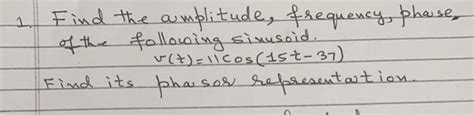 1. Find the amplitude, frequency, phase,
of the following sinusoid.
v(t)=11cos(15t-37)
Find its phasor representation.